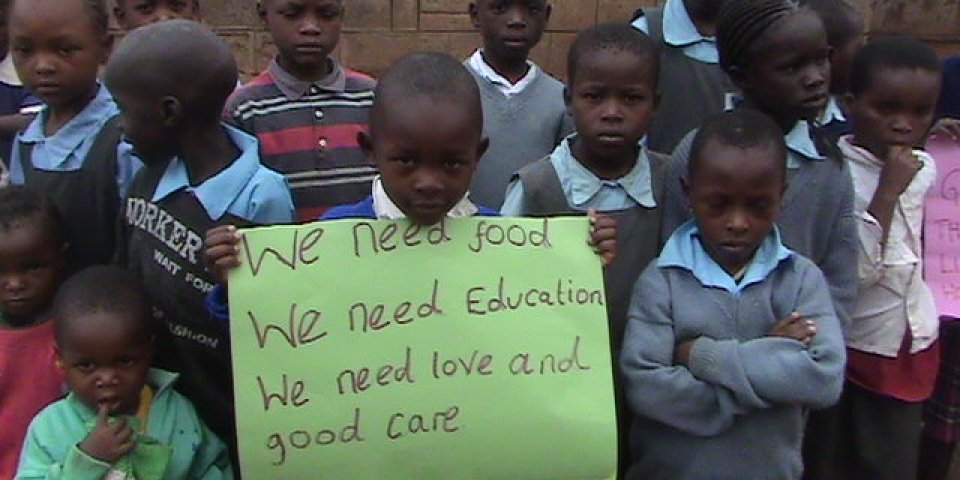 We need food
We need Education
We need love and
good care
WORKER
WAIT FOR
FASHION